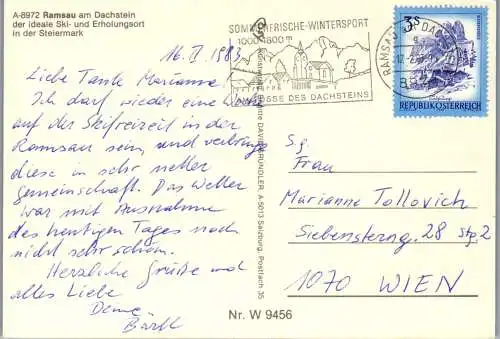 A-8972 Ramsau am Dachstein
der ideale Ski- und Erholungsort
in der Steiermark
16. II. 1983
Liebe Tante Marianne!
Ich darf wieder eine Woche
auf der Skifreizeit in der
Ramsau sein, und verbringe
diese in sehr netter
Gemeinschaft. Das Wetter
war mit Ausnahme
des heutigen Tages noch
nicht sehr schön.
Herzliche Grüße und
alles Liebe
Deine
Bärli
SOMMERFRISCHE-WINTERSPORT
1000-1600 m
DES DACHSTEINS
RAMSAU
3S
REPUBLIK ÖSTERREICH
A-5013 Salzburg, Postfach 35
S.g.
Frau
Marianne Tollovich
Siebensterng. 28 Stg. 2
1070 WIEN
Nr. W 9456